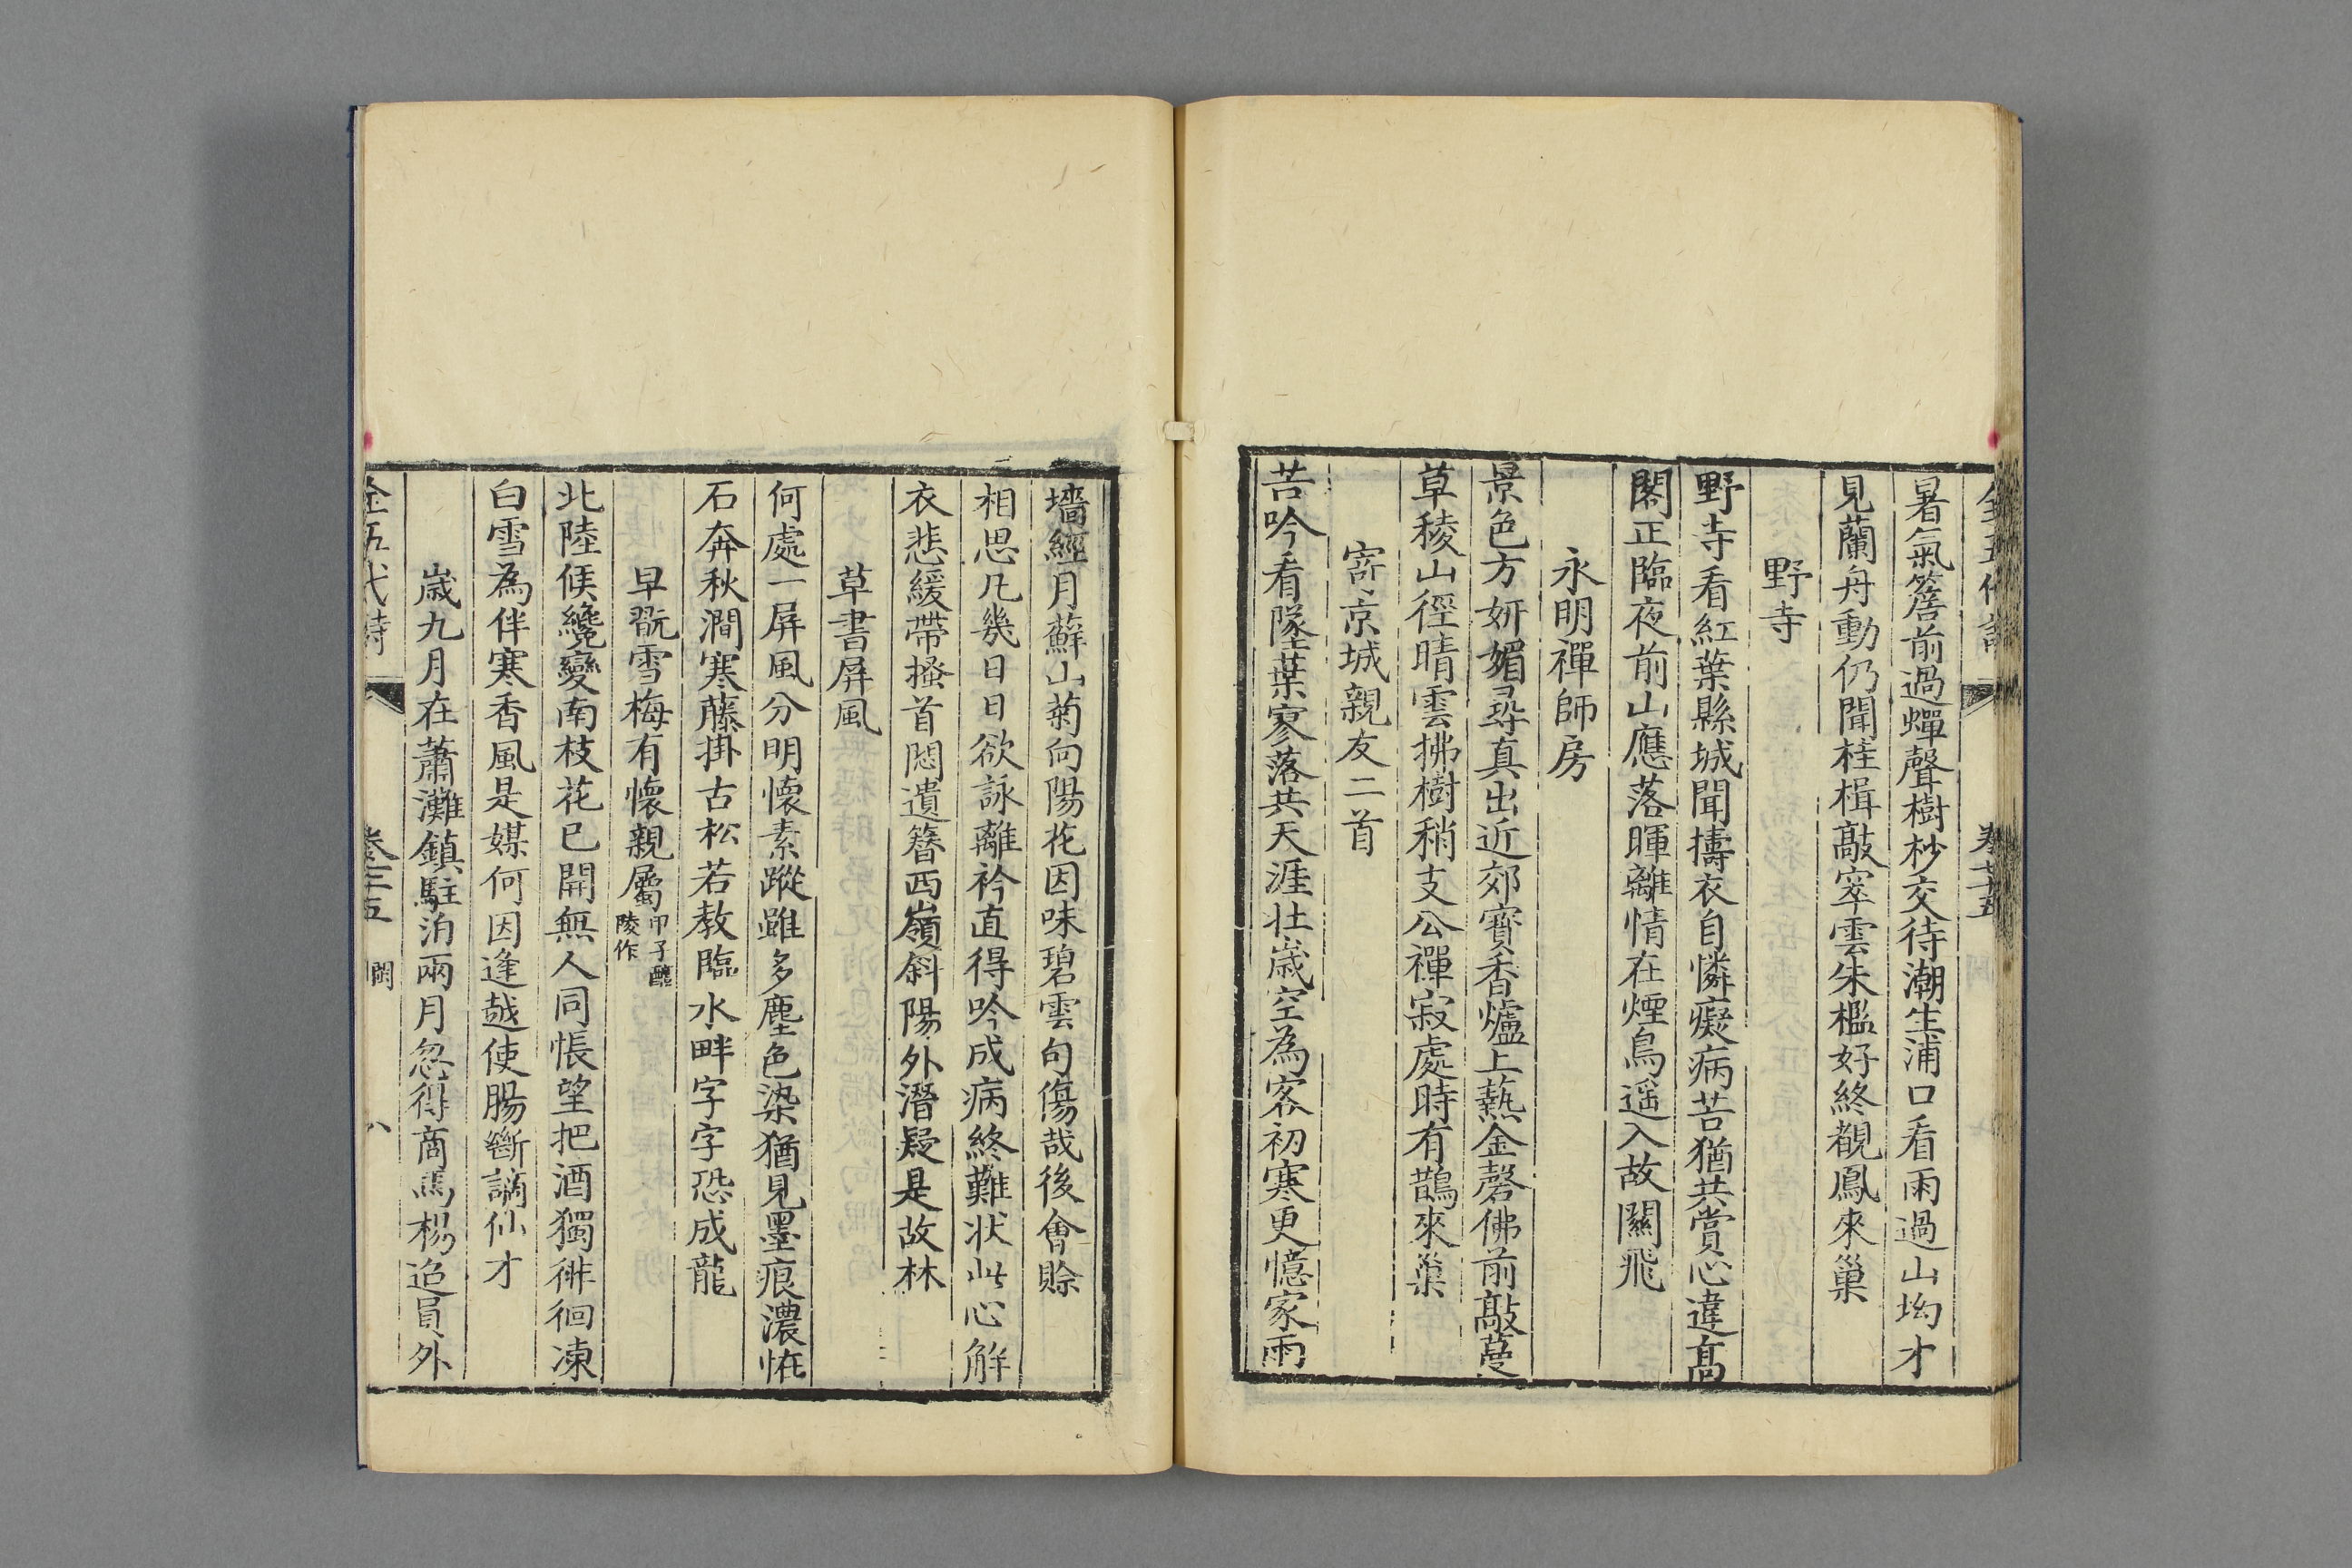 暑氣簷前過蟬聲樹杪交待潮生浦口看雨過山坳才
見蘭舟動仍聞桂楫敲窣雲朱檻好終覩鳳來巢
野寺
野寺看紅葉縣城聞擣衣自憐癡病苦猶共賞心違髙
閣正臨夜前山應落暉離情在煙鳥遥入故關飛
永明禪師房
景色方妍媚尋真出近郊寳香爐上爇金磬佛前敲蔓
草稜山徑晴雲拂樹稍支公禪寂處時有鵲來巢
寄京城親友二首
苦吟看墜葉寥落共天涯壮歲空為客初寒更憶家雨
墻經月蘚山菊向陽花因味碧雲句傷哉後會賒
相思凡幾日日欲詠離衿直得吟成病終難状此心解
衣悲緩帶搔首悶遺簪西嶺斜陽外潛疑是故林
草書屏風
何處一屏風分明懷素蹤雖多塵色染猶見墨痕濃恠
石奔秋澗寒藤掛古松若教臨水畔字字恐成龍
早翫雪梅有懷親屬甲子醴陵作
北陸候纔變南枝花已開無人同悵望把酒獨徘徊凍
白雪為伴寒香風是媒何因逢越使腸斷謫仙才
歲九月在蕭灘鎮駐泊兩月忽得商馬楊迨員外
全五代詩 八